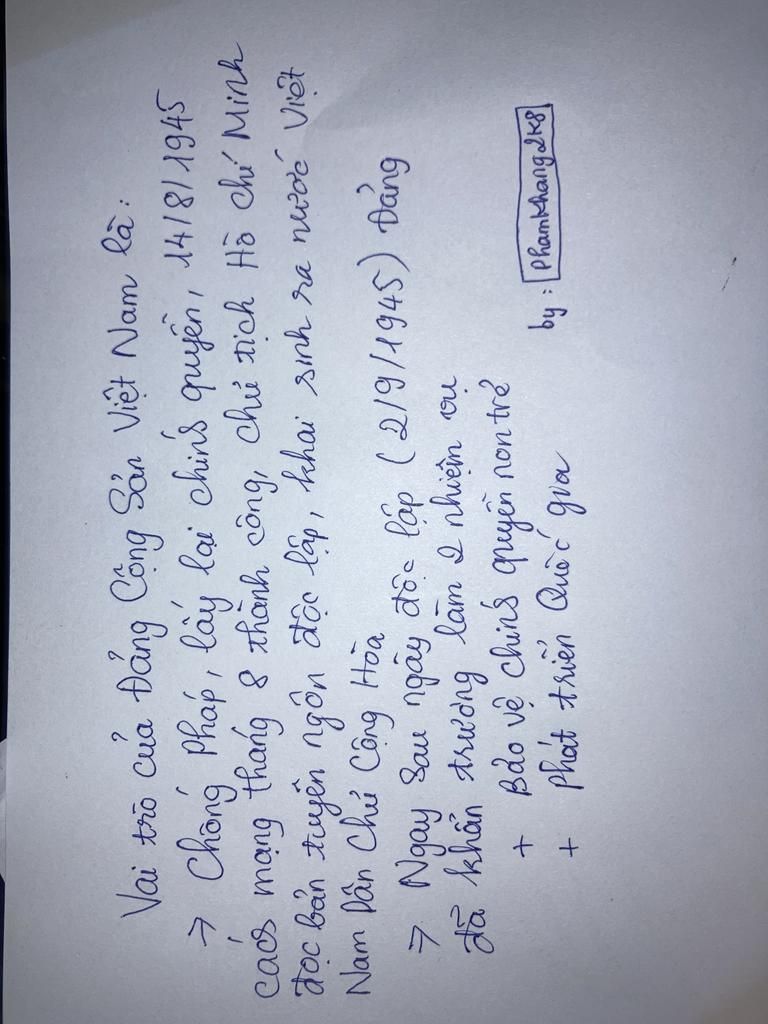 Vai trò của Đảng Cộng Sản Việt Nam là:
→ Chống Pháp, lấy lại chính quyền, 14/8/1945
cách mạng tháng 8 thành công, chủ tịch Hồ Chí Minh
đọc bản tuyên ngôn độc lập, khai sinh ra nước Việt
Nam Dân Chủ Cộng Hòa
→ Ngay sau ngày độc lập (2/9/1945) Đảng
đã khẩn trương làm 2 nhiệm vụ
+ Bảo vệ chính quyền non trẻ
+ Phát triển Quốc gia
by: Phamkhang2k8